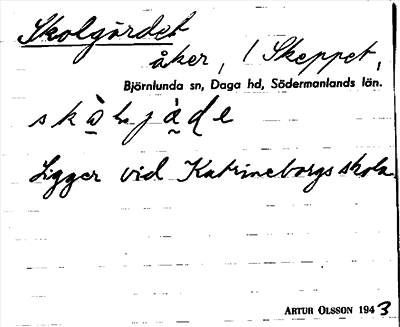 Skolgärdet
åker, 1 Skeppet,
Björnlunda sn, Daga hd, Södermanlands län.
Ligger vid Katrineborgs skola.
ARTUR OLSSON 1943